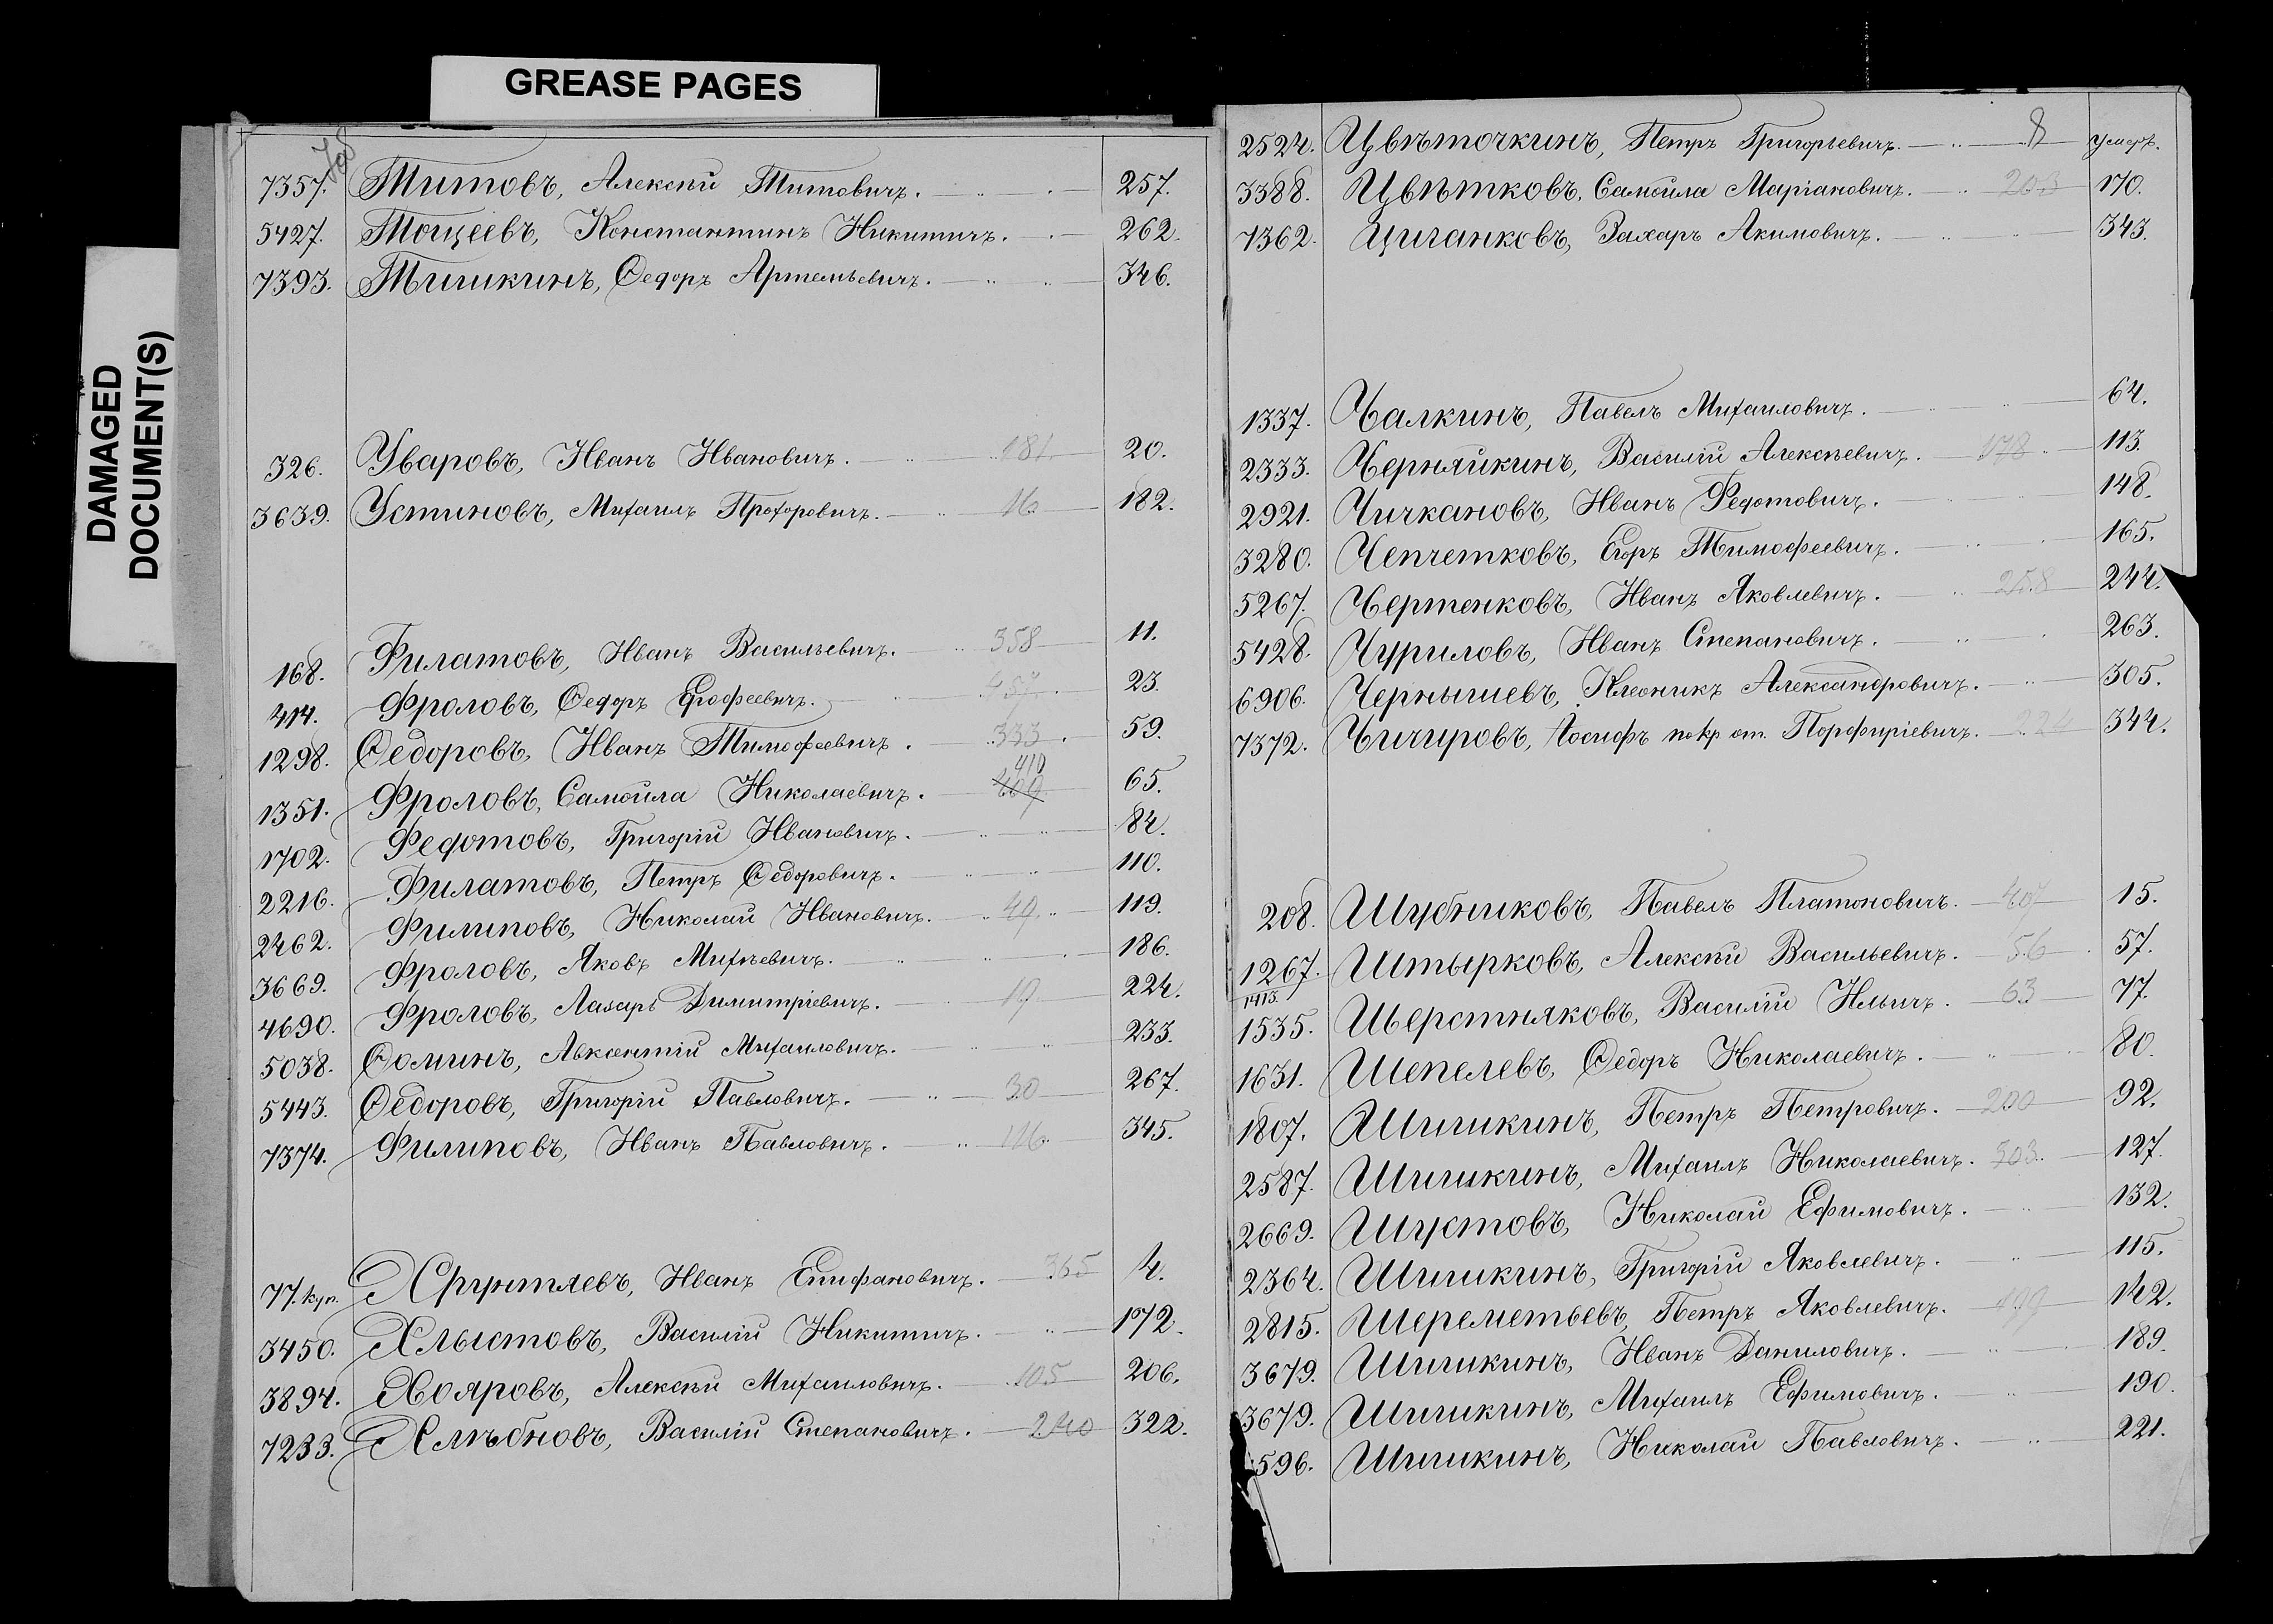 GREASE PAGES
DAMAGED
DOCUMENT(S)
7357. Титовъ, Алексѣй Титовичъ. 257.
5427. Тощеевъ, Константинъ Никитичъ. 262.
7393. Тишкинъ, Ѳедоръ Артемьевичъ. 346.
326. Уваровъ, Иванъ Ивановичъ. 181. 20.
3639. Устиновъ, Михаилъ Прохоровичъ. 16 182.
168. Филатовъ, Иванъ Васильевичъ. 358 11.
414. Фроловъ, Ѳедоръ Ерофеевичъ. 457 23.
1298. Ѳедоровъ, Иванъ Тимофеевичъ. 333 59.
410
1351. Фроловъ, Самойла Николаевичъ. 409 65.
1702. Федотовъ, Григорій Ивановичъ. 84.
2216. Филатовъ, Петръ Ѳедоровичъ. 110.
2462. Филиповъ, Николай Ивановичъ. 49 119.
3669. Фроловъ, Яковъ Михѣевичъ. 186.
4690. Фроловъ, Лазарь Димитріевичъ. 19 224.
5038. Ѳоминъ, Авксентій Михаиловичъ. 233.
5443. Ѳедоровъ, Григорій Павловичъ. 30 267.
7374. Филиповъ, Иванъ Павловичъ. 116 345.
77. куп. Хрунтяевъ, Иванъ Епифановичъ. 365 4.
3450. Хлыстовъ, Василій Никитичъ. 172.
3894. Хояровъ, Алексѣй Михаиловичъ. 105 206.
7233. Хлѣбновъ, Василій Степановичъ. 240 322.
2524. Цвѣточкинъ, Петръ Григорьевичъ. 8 умеръ.
3388. Цвѣтковъ, Самойла Маріановичъ. 203 170.
7362. Циганковъ, Захаръ Акимовичъ. 343.
1337. Чалкинъ, Павелъ Михаиловичъ. 64.
2333. Черняйкинъ, Василій Алексѣевичъ. 178 113.
2921. Чичкановъ, Иванъ Федотовичъ. 148.
3280. Чепчетковъ, Егоръ Тимофеевичъ. 165.
5267. Чертенковъ, Иванъ Яковлевичъ. 258 244.
5428. Чуриловъ, Иванъ Степановичъ. 263.
6906. Чернышевъ, Клеоникъ Александровичъ. 305.
7372. Чичировъ, Іосифъ по кр. от. Порфиріевичъ. 224 344.
208. Шубниковъ, Павелъ Платоновичъ. 407 15.
1267. Штырковъ, Алексѣй Васильевичъ. 56 57.
1413.
1535. Шерстняковъ, Василій Ильичъ. 63 77.
1631. Шепелевъ, Ѳедоръ Николаевичъ. 80.
1807. Шишкинъ, Петръ Петровичъ. 200 92.
2587. Шишкинъ, Михаилъ Николаевичъ. 503 127.
2669. Шустовъ, Николай Ефимовичъ. 132.
2364. Шишкинъ, Григорій Яковлевичъ. 115.
2815. Шереметьевъ, Петръ Яковлевичъ. 499 142.
3679. Шишкинъ, Иванъ Даниловичъ. 189.
3679. Шишкинъ, Михаилъ Ефимовичъ. 190.
596. Шишкинъ, Николай Павловичъ. 221.